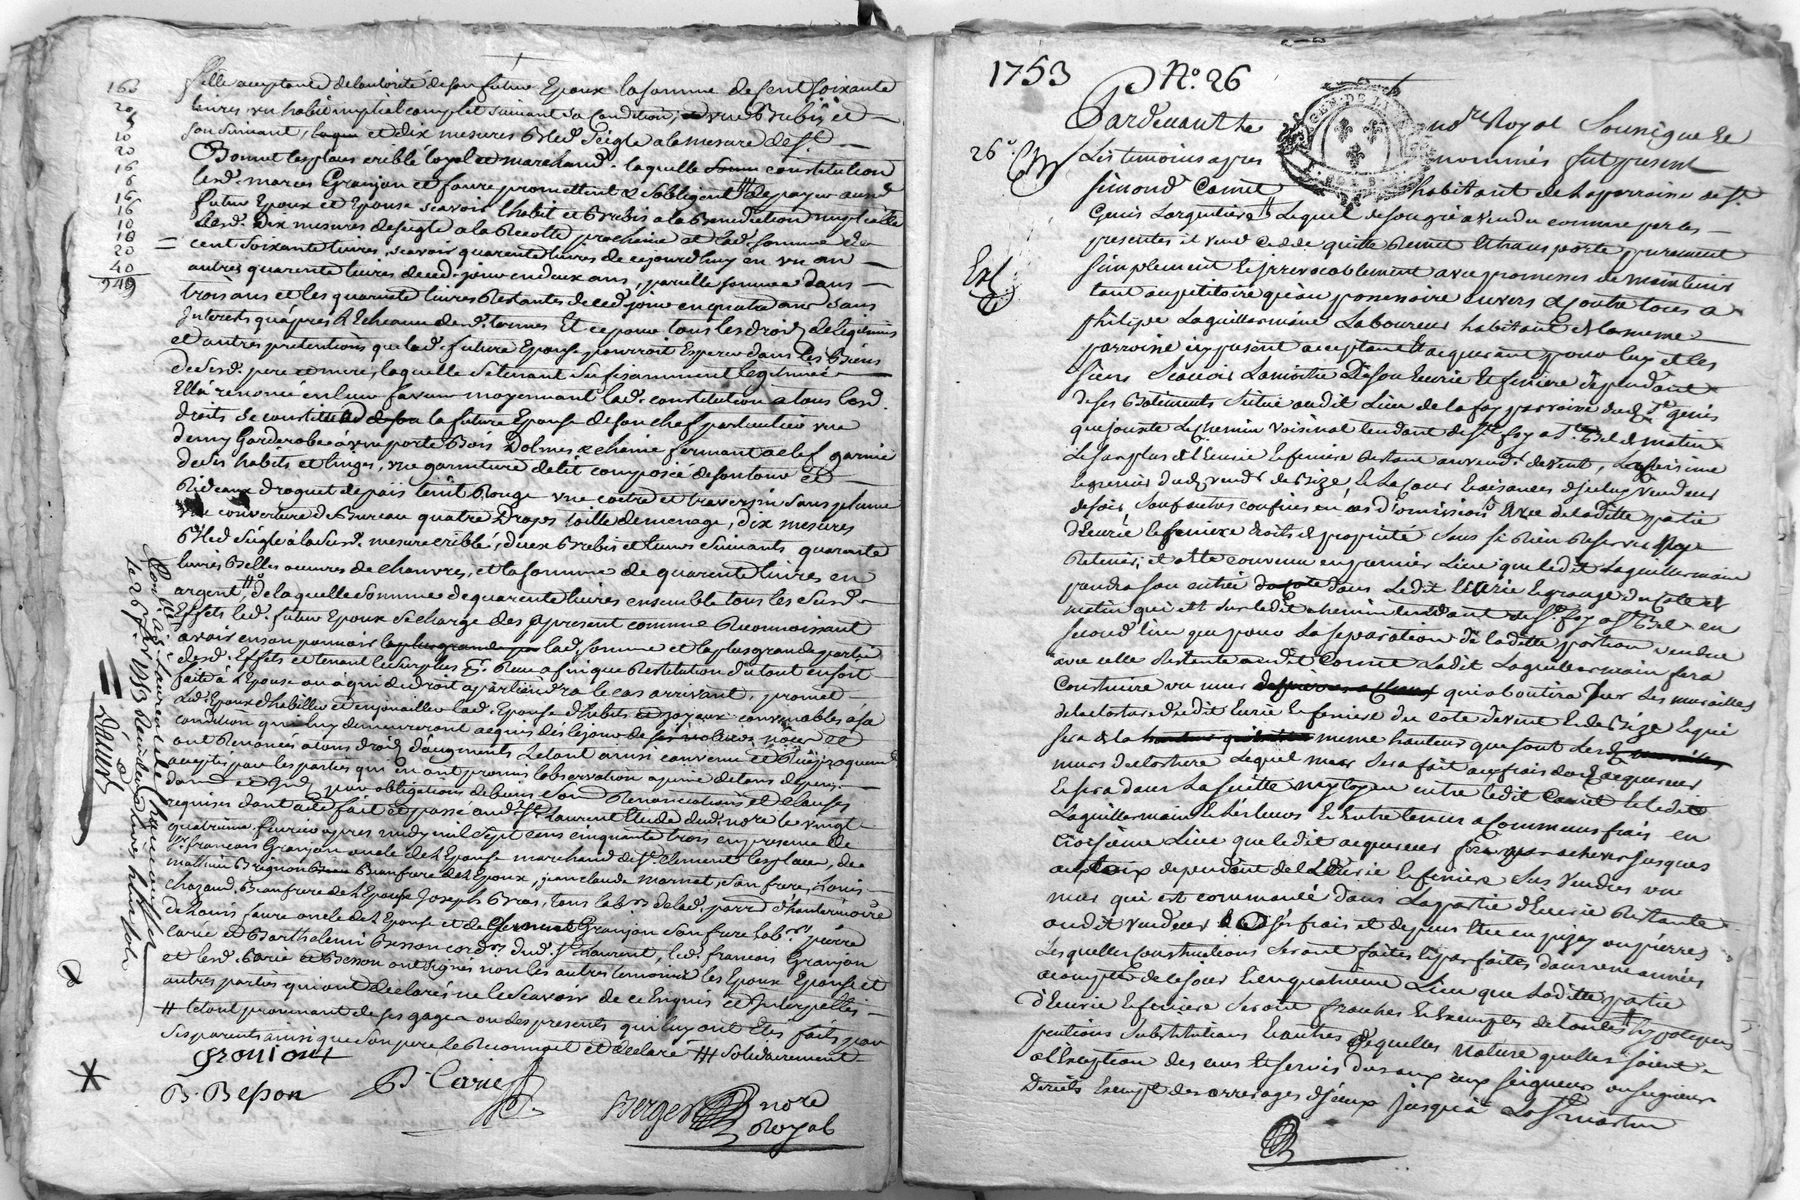 fille acceptante de lautorité de son futur Epoux la somme de Cent soixante
livres, un habit nuptial complet suivant sa condition, une Brebis et
son suivant, et dix mesures Bled seigle a la mesure de St.
Bonnet les places criblé loyal et marchand. laquelle constitution
lesd. maries Granjon et faure promettent & s'obligent # de payer auxd
futur Epoux et Epouse scavoir l'habit et Brebis a la Benediction nuptialle
lesd. Dix mesures de seigle a la Recolte prochaine et lad. somme de
cent soixante livres, scavoir quarente livres de cejourdhuy en un an
autres quarente livres dud. jour en deux ans, pareille somme dans
trois ans et les quarente livres Restantes de ced. jour en quatre ans sans
Interets qu'après l'Echeance desd. termes Et ce pour tous les droits de legitimes
et autres pretentions que lad. future Epouse pourroit Esperer dans les Biens
de sesd. pere et mere, laquelle se tenant suffisamment legitimée
Ella renoncé en leur faveur moyennant lad. constitution a tous lesd.
droits se constitue la future Epouse de son chef particulier une
demy Garderobe à une porte Bois Dolmes & chaine fermant a clef garnie
de ses habits et linges, une garniture de lit composée de son tour et
Rideaux droguet de païs teint Rouge une coetre et traversin sans plume
une couverture de Bureau quatre Draps toille de menage, dix mesures
Bled seigle à la susd. mesure criblé, deux Brebis et leurs suivants quarente
livres Belles oeuvres de chanvres, et la somme de quarente livres en
argent, #° de laquelle somme de quarente livres ensemble tous les susd.
Effets led. futur Epoux se charge des apresent comme Reconnoissant
avoir en son pouvoir lad. somme et la plus grande partie
desd. Effets et tenant le surplus pr. Reçu afin que Restitution du tout en soit
faite à l'Epouse ou à qui de droit apartiendra le cas arrivant, promet
led. Epoux d'habiller et enjoailler lad. Epouse d'habits et joyaux convenables à sa
condition qui luy demeureront acquis des le jour de ses noces et
ont Renoncés a tous droits d'augments Le tout ainsi convenu et Reciproquement
acepté par les parties qui en ont promis l'observation a peine de tous depens
dom. et Int. par obligations de biens soum. Renonciations et clauses
requises dont acte fait et passé aud. St. Laurent Etude dud. nore. le vingt
quatrieme fevrier apres midy mil sept cens cinquante trois en presence de
sr. francois Granjon oncle de l'Epouse marchand de St. clement les places, de
mathieu Brignon Beaufrere de l'Epoux, jean claude marnat, son frere, Louis
chazaud, Beaufrere de l'Epouse Joseph Bras, tous labrs. de lad. parr. d'hauterivoire
de Louis faure oncle de l'Epouse et de Granjon son frere labrs. pierre
Carie et Barthelemi Besson cordrs. dud. St. Laurent, led. francois Granjon
et lesd. Carie et Besson ont signés non les autres temoins les Epoux Epouse et
autres parties qui ont declarés ne le scavoir de ce Enquis et Interpellés
# le tout provenant de ses gages ou des presents qui luy ont Etés faits par
ses parents ainsi que son pere le Reconnoit et declaré ## solidairement
granjont
B. Besson
P. Carie
Berger nore
Royal
160
20
5
10
20
16
6
16
16
10
18
20
40
949
Conté à St. Laurent de Chamousset
le 26 fevr. 1753 Reçu deux livres huit sols
Dáuost
1753 N°. 26
26e.
Ext.
Pardevant le nore. Royal Soussigné Et
Les temoins apres nommés fut present
Simond Comet habitant de la parroisse de St.
Genis Largentiere # Lequel de son gré a vendu comme par les
presentes il vend Cedde quitte Remet Et transporte purement
Simplement Et jrrevocablement avec promesses de maintenir
tant au petitoire qu'au possessoire envers & contre tous a
philipe Laguillermaine Laboureur habitant de la meme
parroisse icy present acceptant & acquerant pour luy et les
siens Scavoir La moitie D'Eson Eurie Et feniere dependante
de ses Batiments Situé audit Lieu de la foy parroisse dud. St. genis
que jouste Le Chemin Voisinal tendant de Ste. foy a St. Bel de matin
Le surplus de l'Eurie Et feniere Restant au vendr. de vent, Le
Et grenier dudt. vendr. de Bize, Et la Cour Et aisances djceluy Vendeur
de soir Sauf autres confins en cas D'omission Avec de laditte partie
D'Eurie Et feniere droits & proprieté Sans si Rien Reserver Ny
Retenir, Et a Ete convenu en premier Lieu que ledit Laguillermaine
prendra son entrée dans Ledit Eurie Et grange du Cote de
matin qui est sur ledit chemin tendant de Ste. foy a St. Bel en
second lieu que pour La separation de laditte portion vendue
avec celle Restante audit Comet Ledit Laguillermain fera
Construire un mur qui aboutira sur Les murailles
de la closture dudit Eurie Et feniere du cote de vent Et de Bize Et qui
sera de la meme hauteur que sont Les
murs de closture Lequel mur sera fait aux frais dudt. acquereur
Et sera dans La suitte mytoyen entre ledit Comet Et ledit
Laguillermain Et Entretenus a Communs frais en
troisieme Lieu que ledit acquereur fera achever jusques
au toix dependant de l'Eurie Et feniere sus Vendus un
mur qui est commancé dans La partie d'Eurie Restante
audit vendeur a ses frais et depens Et en pizey ou pierres
Lesquelles constructions seront faites Et parfaites dans une année
a compter de ce jour Et en quatrieme Lieu que Laditte partie
d'Eurie Et feniere seront franches Et Exemptes de toutes hypoteques
pentions substitutions Et autres dequelles Nature quelles soient
a l'Exception des cens Et servis dus aux seigneur ou seigneurs
Directs Exempt des arrerages djceux jusqu'a La St. martin